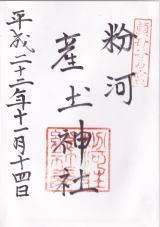 粉河
産土神社
平成二十二年十一月十四日